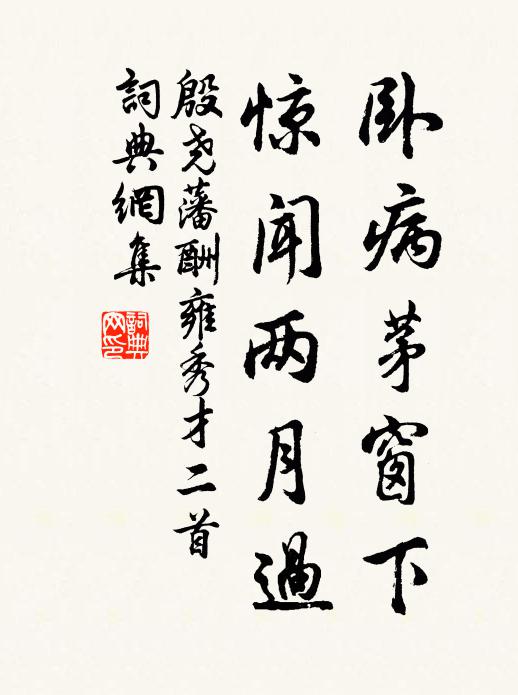 卧病茅窗下
惊闻两月過
殷尧藩酬雍秀才二首
詞典網集
詞典网印